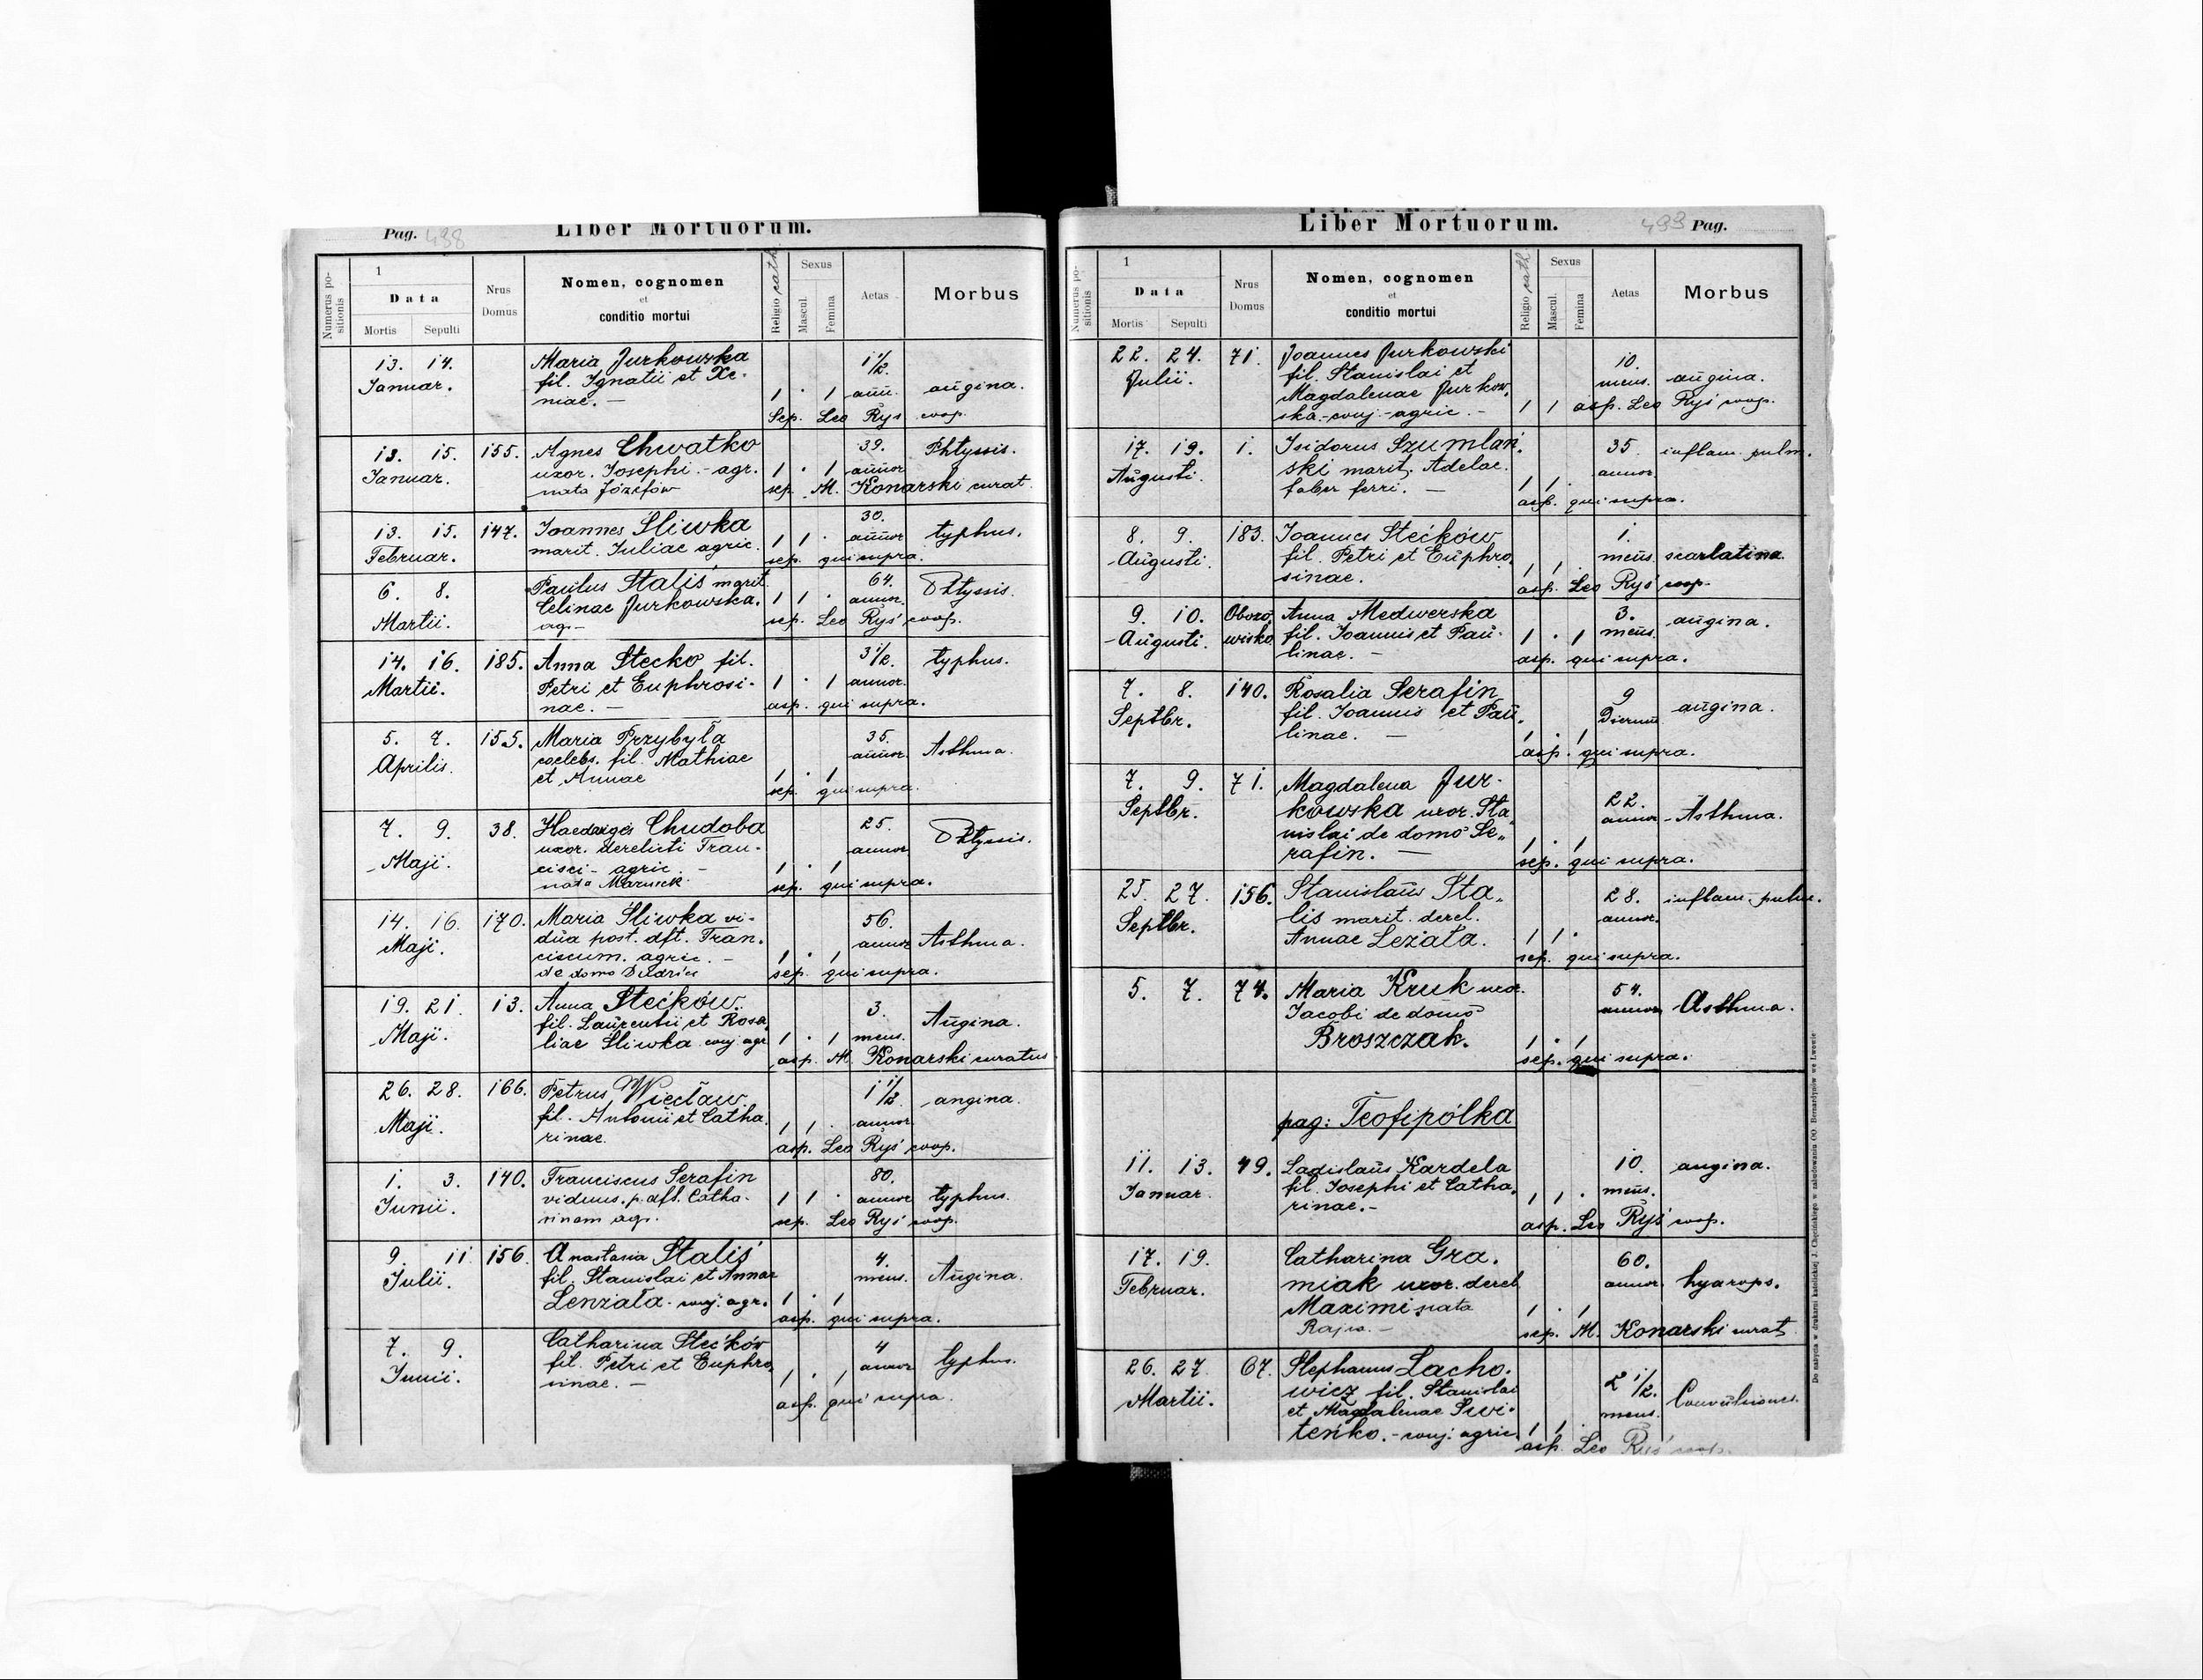 Pag. 498 Liber Mortuorum.
Numerus positionis 1 Data Mortis Sepulti Nrus Domus Nomen, cognomen et conditio mortui Religio cath Sexus Mascul. Femina Aetas Morbus
13. 14. Maria Jurkowska 1 1/2
Januar. fil. Ignatii et Xe-
niae. — 1 · 1 ann. angina.
Sep. Leo Ryś coop.
13. 15. 155. Agnes Chwatko 39. Phtyssis.
Januar. uxor. Josephi - agr. 1 · 1 annor
nata Józifów sep. M. Konarski curat.
13. 15. 147. Joannes Śliwka 30. typhus.
Februar. marit. Juliae agric. 1 1 · annor
sep. qui supra.
6. 8. Paulus Staliś marit. 64. Phtyssis.
Martii. Celinae Jurkowska. 1 1 · annor.
ag- sep. Leo Ryś coop.
14. 16. 185. Anna Stecko fil. 3 1/2. typhus.
Martii. Petri et Euphrosi- 1 · 1 annor.
nae. — asp. qui supra.
5. 7. 155. Maria Przybyła 35. Asthma.
Aprilis. coelebs. fil. Mathiae annor.
et Annae 1 · 1
sep. qui supra.
7. 9. 38. Haedwigis Chudoba 25. Phtyssis.
Maji. uxor. derelicti Fran- annor
cisci - agric. - 1 · 1
nata sep. qui supra.
14. 16. 170. Maria Śliwka vi- 56. Asthma.
Maji. dua post. dft. Fran- annor
ciscum. agric. — 1 · 1
de domo sep. qui supra.
19. 21. 13. Anna Stećków. 3. Angina.
Maji. fil. Laurentii et Rosa-
liae Śliwka conj. agr. 1 · 1 mens.
asp. M. Konarski curatus.
26. 28. 166. Petrus Więcław. 1 1/2 angina.
Maji. fil. Antonii et Catha- annor.
rinae. 1 1 ·
asp. Leo Ryś coop.
1. 3. 140. Franciscus Serafin 80. typhus.
Junii. viduus. p. dft. Catha- 1 1 · annor
rinam agr. sep. Leo Ryś coop.
9. 11 156. Anastasia Staliś 4. Angina.
Julii. fil. Stanislai et Annae mens.
Lenzała - conj. agr. 1 · 1
asp. qui supra.
7. 9. Catharina Stećków 4 typhus.
Junii. fil. Petri et Euphro- annor
sinae. — 1 · 1
asp. qui supra.
Liber Mortuorum. 499 Pag.
Numerus positionis 1 Data Mortis Sepulti Nrus Domus Nomen, cognomen et conditio mortui Religio cath Sexus Mascul. Femina Aetas Morbus
22. 24. 71. Joannes Jurkowski 10.
Julii. fil. Stanislai et mens. angina.
Magdalenae Jurkow-
ska. - conj. - agric. - 1 1 asp. Leo Ryś coop.
17. 19. 1. Isidorus Szumlań- 35 inflam. pulm.
Augusti. ski marit. Adelae. annor
faber ferri. — 1 1 .
asp. qui supra.
8. 9. 183. Joannes Stećków 1.
Augusti. fil. Petri et Euphro- mens. scarlatina.
sinae. 1 1 .
asp. Leo Ryś coop.
9. 10. Obozo- Anna Medwerska 3. angina.
Augusti. wisko fil. Joannis et Pau- 1 · 1 mens.
linae. — asp. qui supra.
7. 8. 140. Rosalia Serafin 9 angina.
Septbr. fil. Joannis et Pau- Dierum
linae. — 1 · 1
asp. qui supra.
7. 9. 71. Magdalena Jur-
Septbr. kowska uxor. Sta- 22. annor Asthma.
nislai de domo Se-
rafin. — 1 · 1
sep. qui supra.
25. 27. 156. Stanislaus Sta- 28. inflam. pulm.
Septbr. lis marit. derel. annor.
Annae Leżała. 1 1 ·
sep. qui supra.
5. 7. 74. Maria Kruk uxor. 54. Asthma.
Jacobi de domo annor
Broszczak. 1 · 1
sep. qui supra.
pag: Teofipólka
11. 13. 49. Ladislaus Kardela 10. angina.
Januar. fil. Josephi et Catha- mens.
rinae. - 1 1 ·
asp. Leo Ryś coop.
17. 19. Catharina Gra- 60. hydrops.
Februar. miak uxor. derel. annor.
Maximi nata 1 · 1
sep. M. Konarski curat.
26. 27 67. Stephanus Lacho- 2 1/2. Convulsiones.
Martii. wicz fil. Stanislai
et Magdalenae Swi- mens.
teńko. - conj. agric. 1 1
asp. Leo Ryś coop.
Do nabycia w drukarni katolickiej J. Chęcińskiego w zabudowaniu OO. Bernardynów we Lwowie